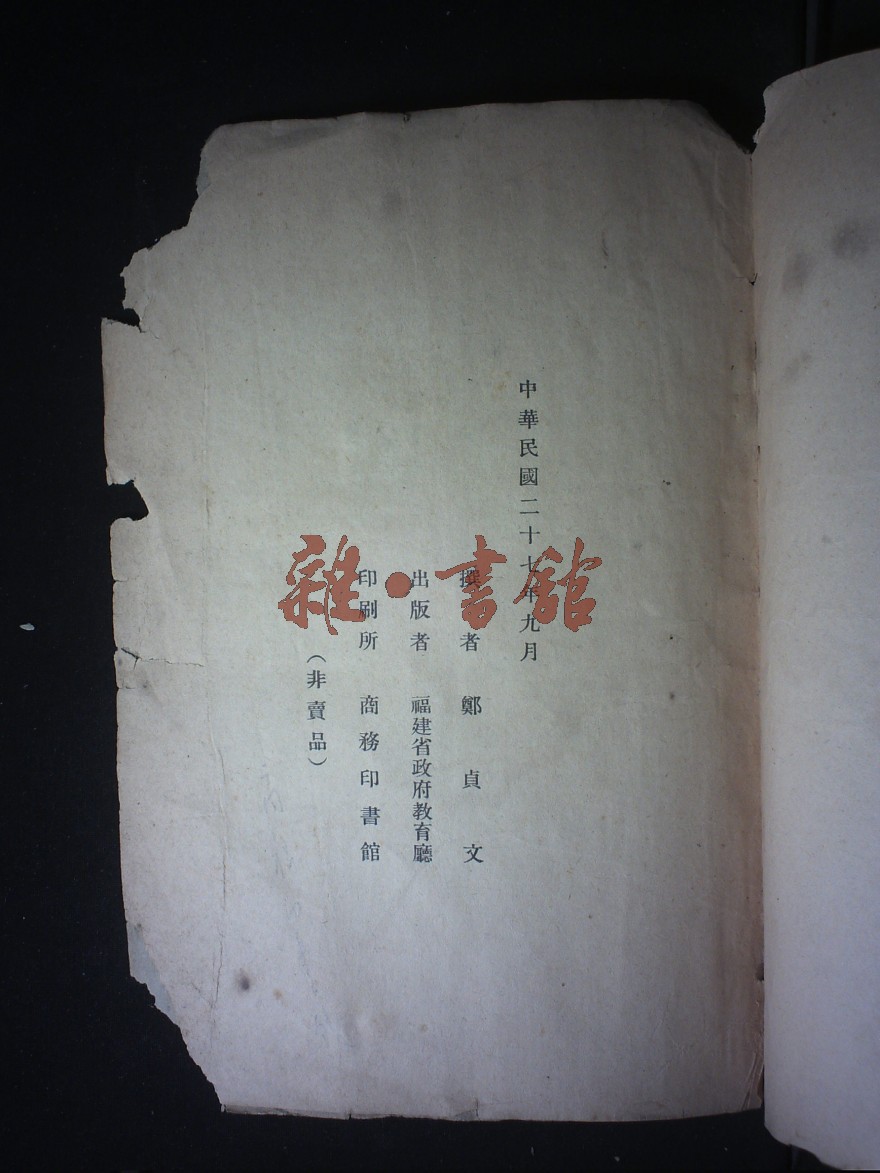 中華民國二十七年九月
撰者 鄭貞文
出版者 福建省政府教育廳
印刷所 商務印書館
（非賣品）
雜·書館